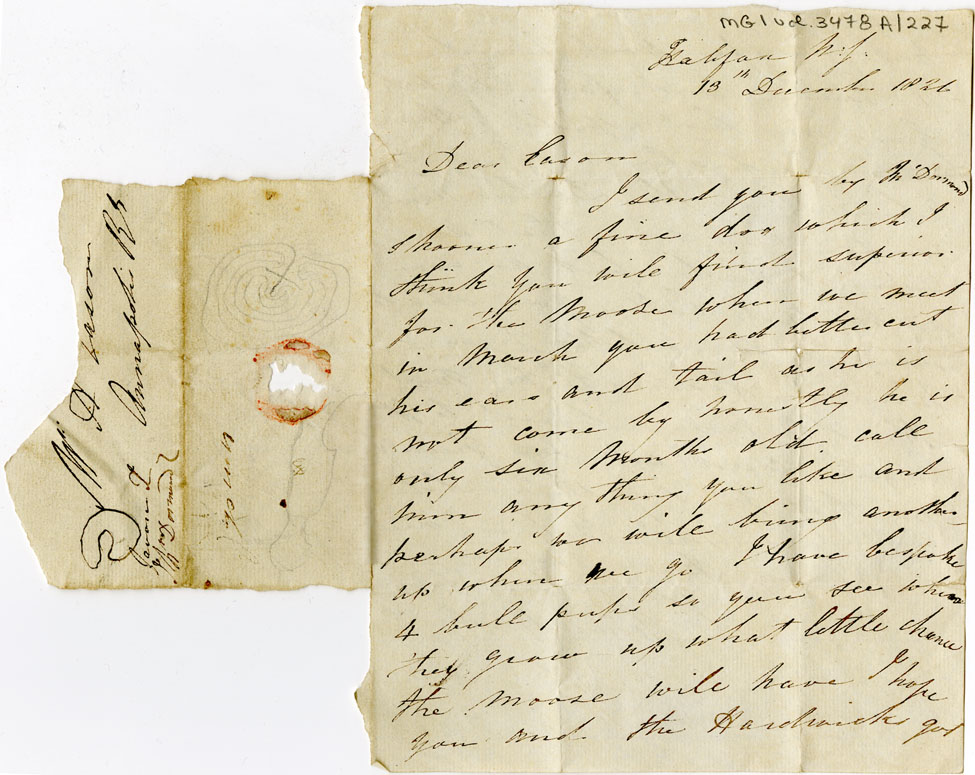 MG1 vol. 3478 A/227
Halifax N.S.
13th December 1826
Dear Eason
I send you by McDormand
shooner a fine dog which I
think you will find superior
for the Moose when we meet
in March you had better cut
his ears and tail as he is
not come by honestly he is
only six months old call
him any thing you like and
perhaps we will bring another
up when we go I have bespoke
4 bull pups so you see when
they grow up what little chance
the moose will have I hope
you and the Hardwicks got
Mr. D Eason
Annapolis R
Favor'd
McDormand